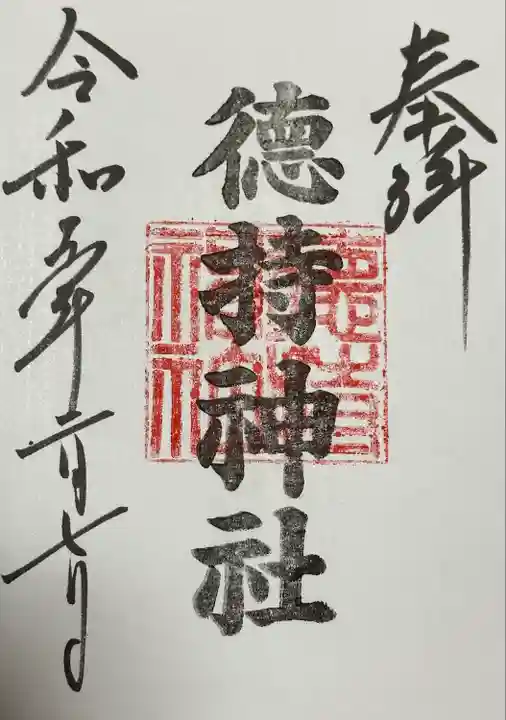 奉拝
德持神社
令和五年二月七日